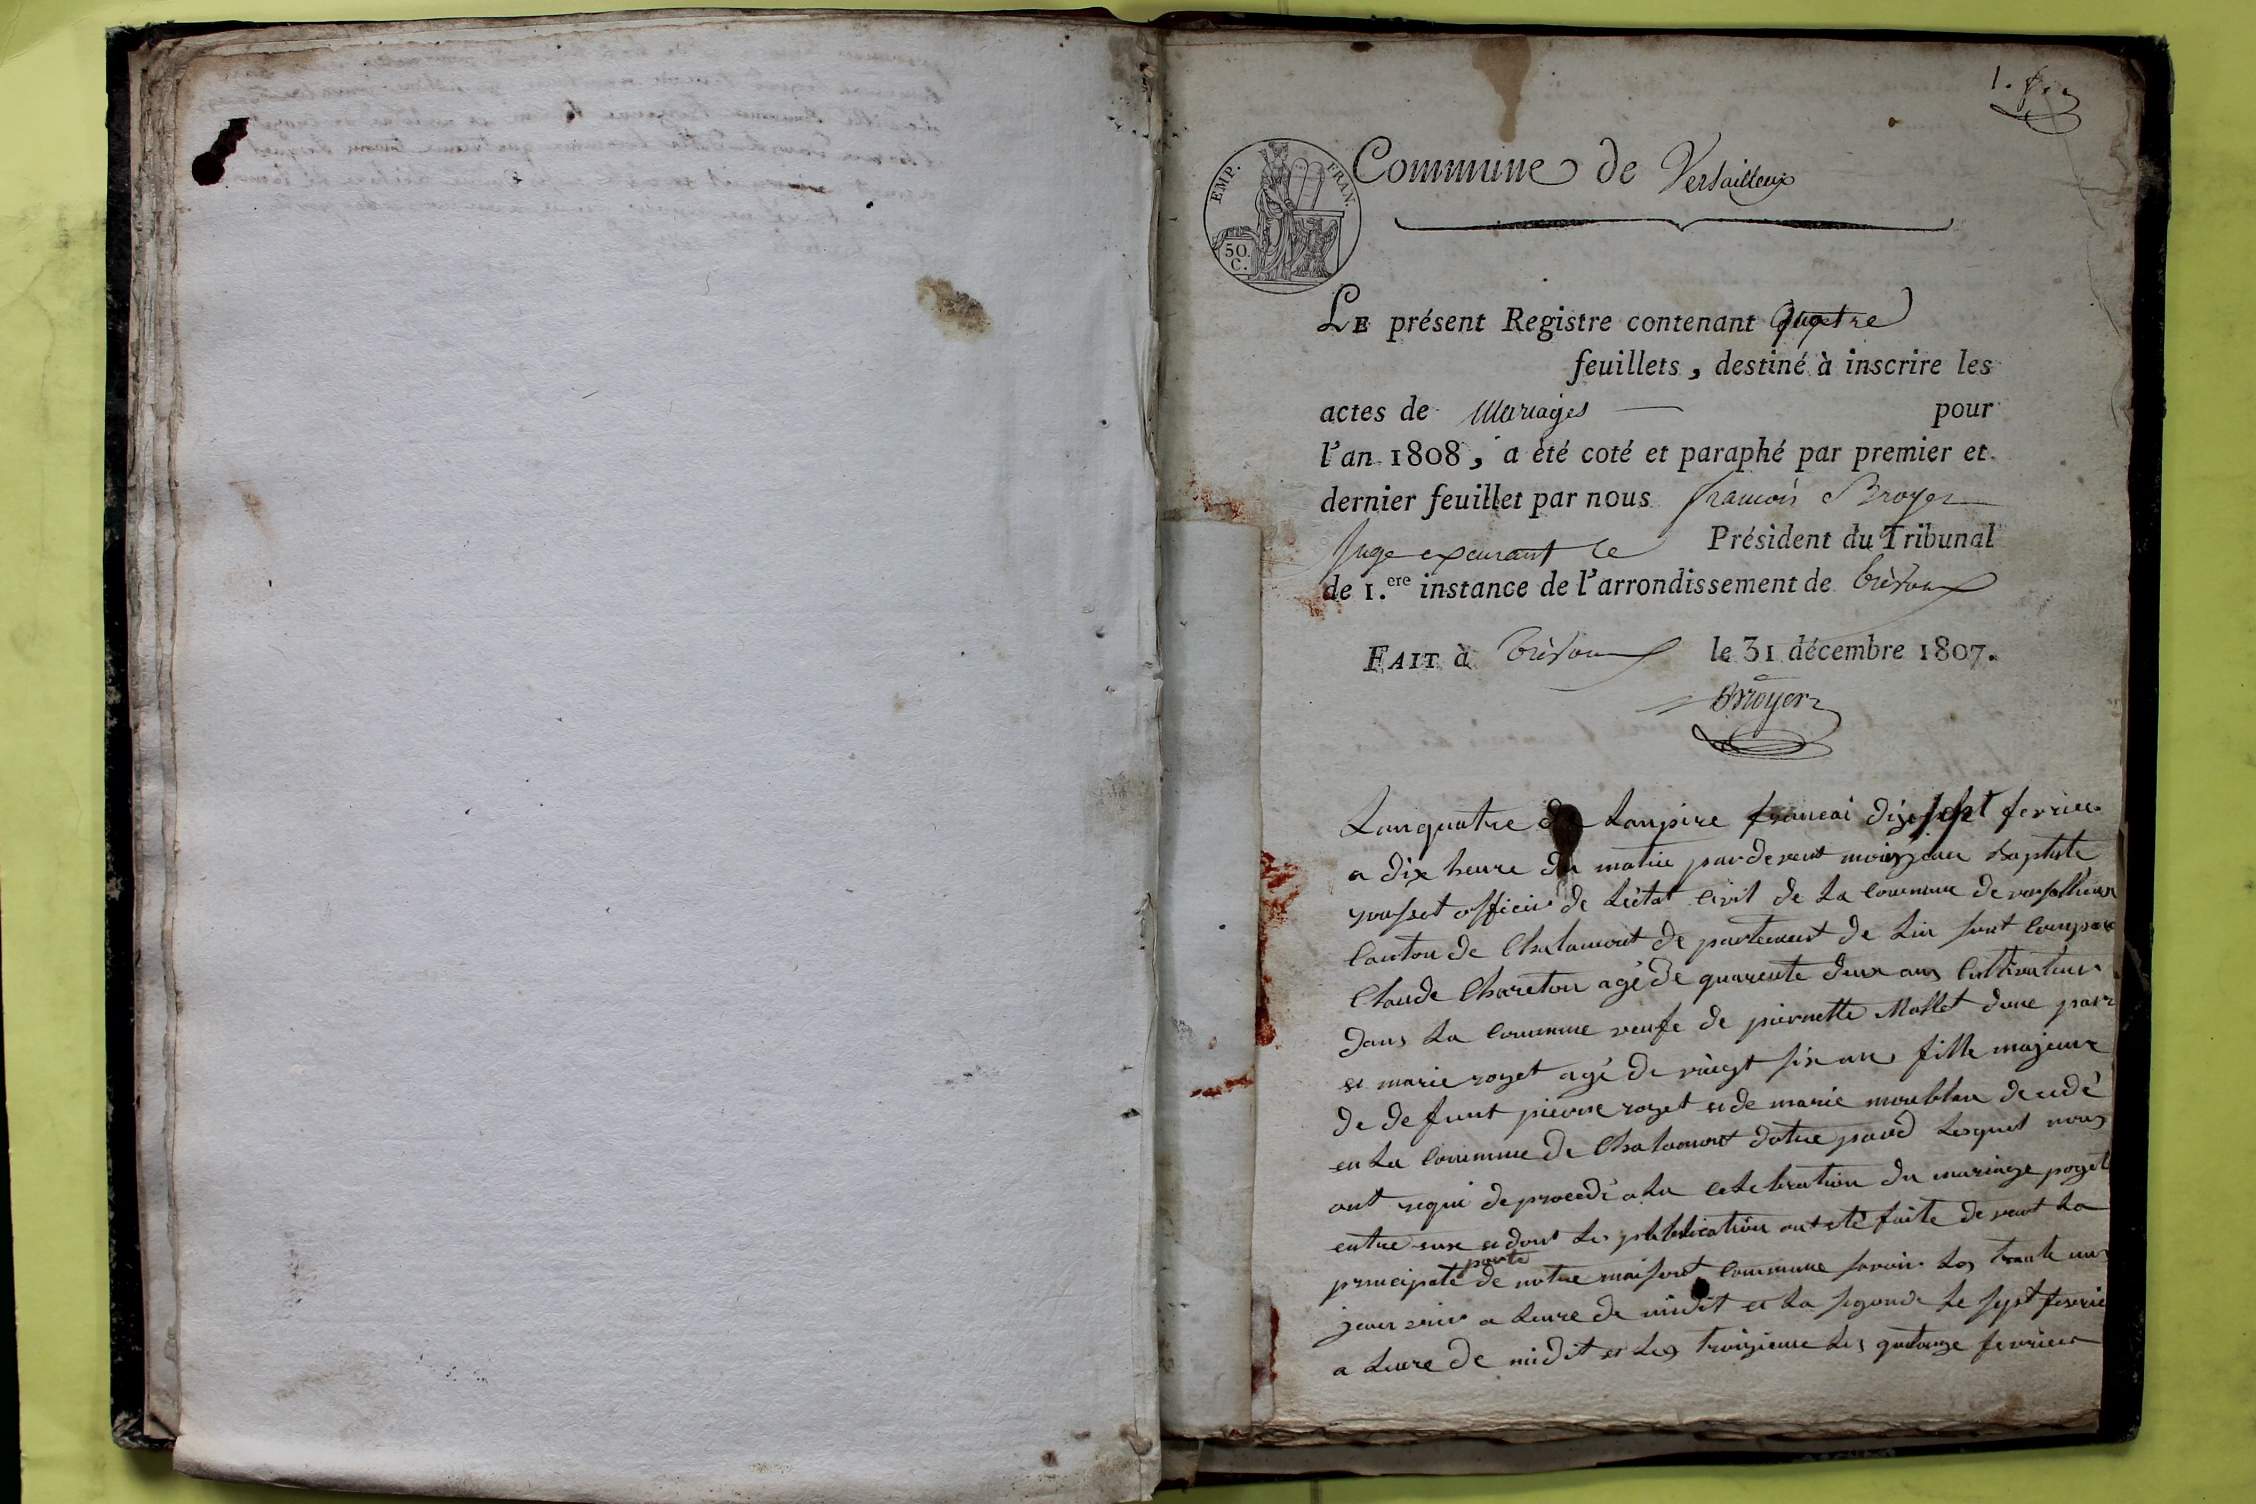 1. er
Commune de Versailleux
EMP. FRAN.
50 C.
LE présent Registre contenant quatre
feuillets, destiné à inscrire les
actes de Mariages — pour
l'an 1808, a été coté et paraphé par premier et
dernier feuillet par nous francois Broyer
Juge exerçant le Président du Tribunal
de 1.ere instance de l'arrondissement de trévoux
FAIT à trévoux le 31 décembre 1807.
Broyer
Lanquatre de Lanpire francai dix sept fevrier
a dix heure du matin par devent moi jean Baptiste
officier de Létat Civil de La Commune de versallieux
Canton de Chalamont de partement de Lin sont Compare
Claude Chareton agé de quarente deux ans Cultivateur
dans La Commune veufe de pierrette Mollet dune part
et marie royet agé de vingt six ans fille majeure
de defunt pierre royet et de marie decedé
en La Commune de Chalamont dotre pard Lesquel nous
ont requi de procedé a La Celebration du mariage proget
entre eux et dont Les publication ont eté faite devent La
principale porte de notre maisont Commune savoir Les trente un
janvier a Leure de midit et La segonde Le sept fevrie
a Leure de midit et Les troizieme Les quatorze fevrier